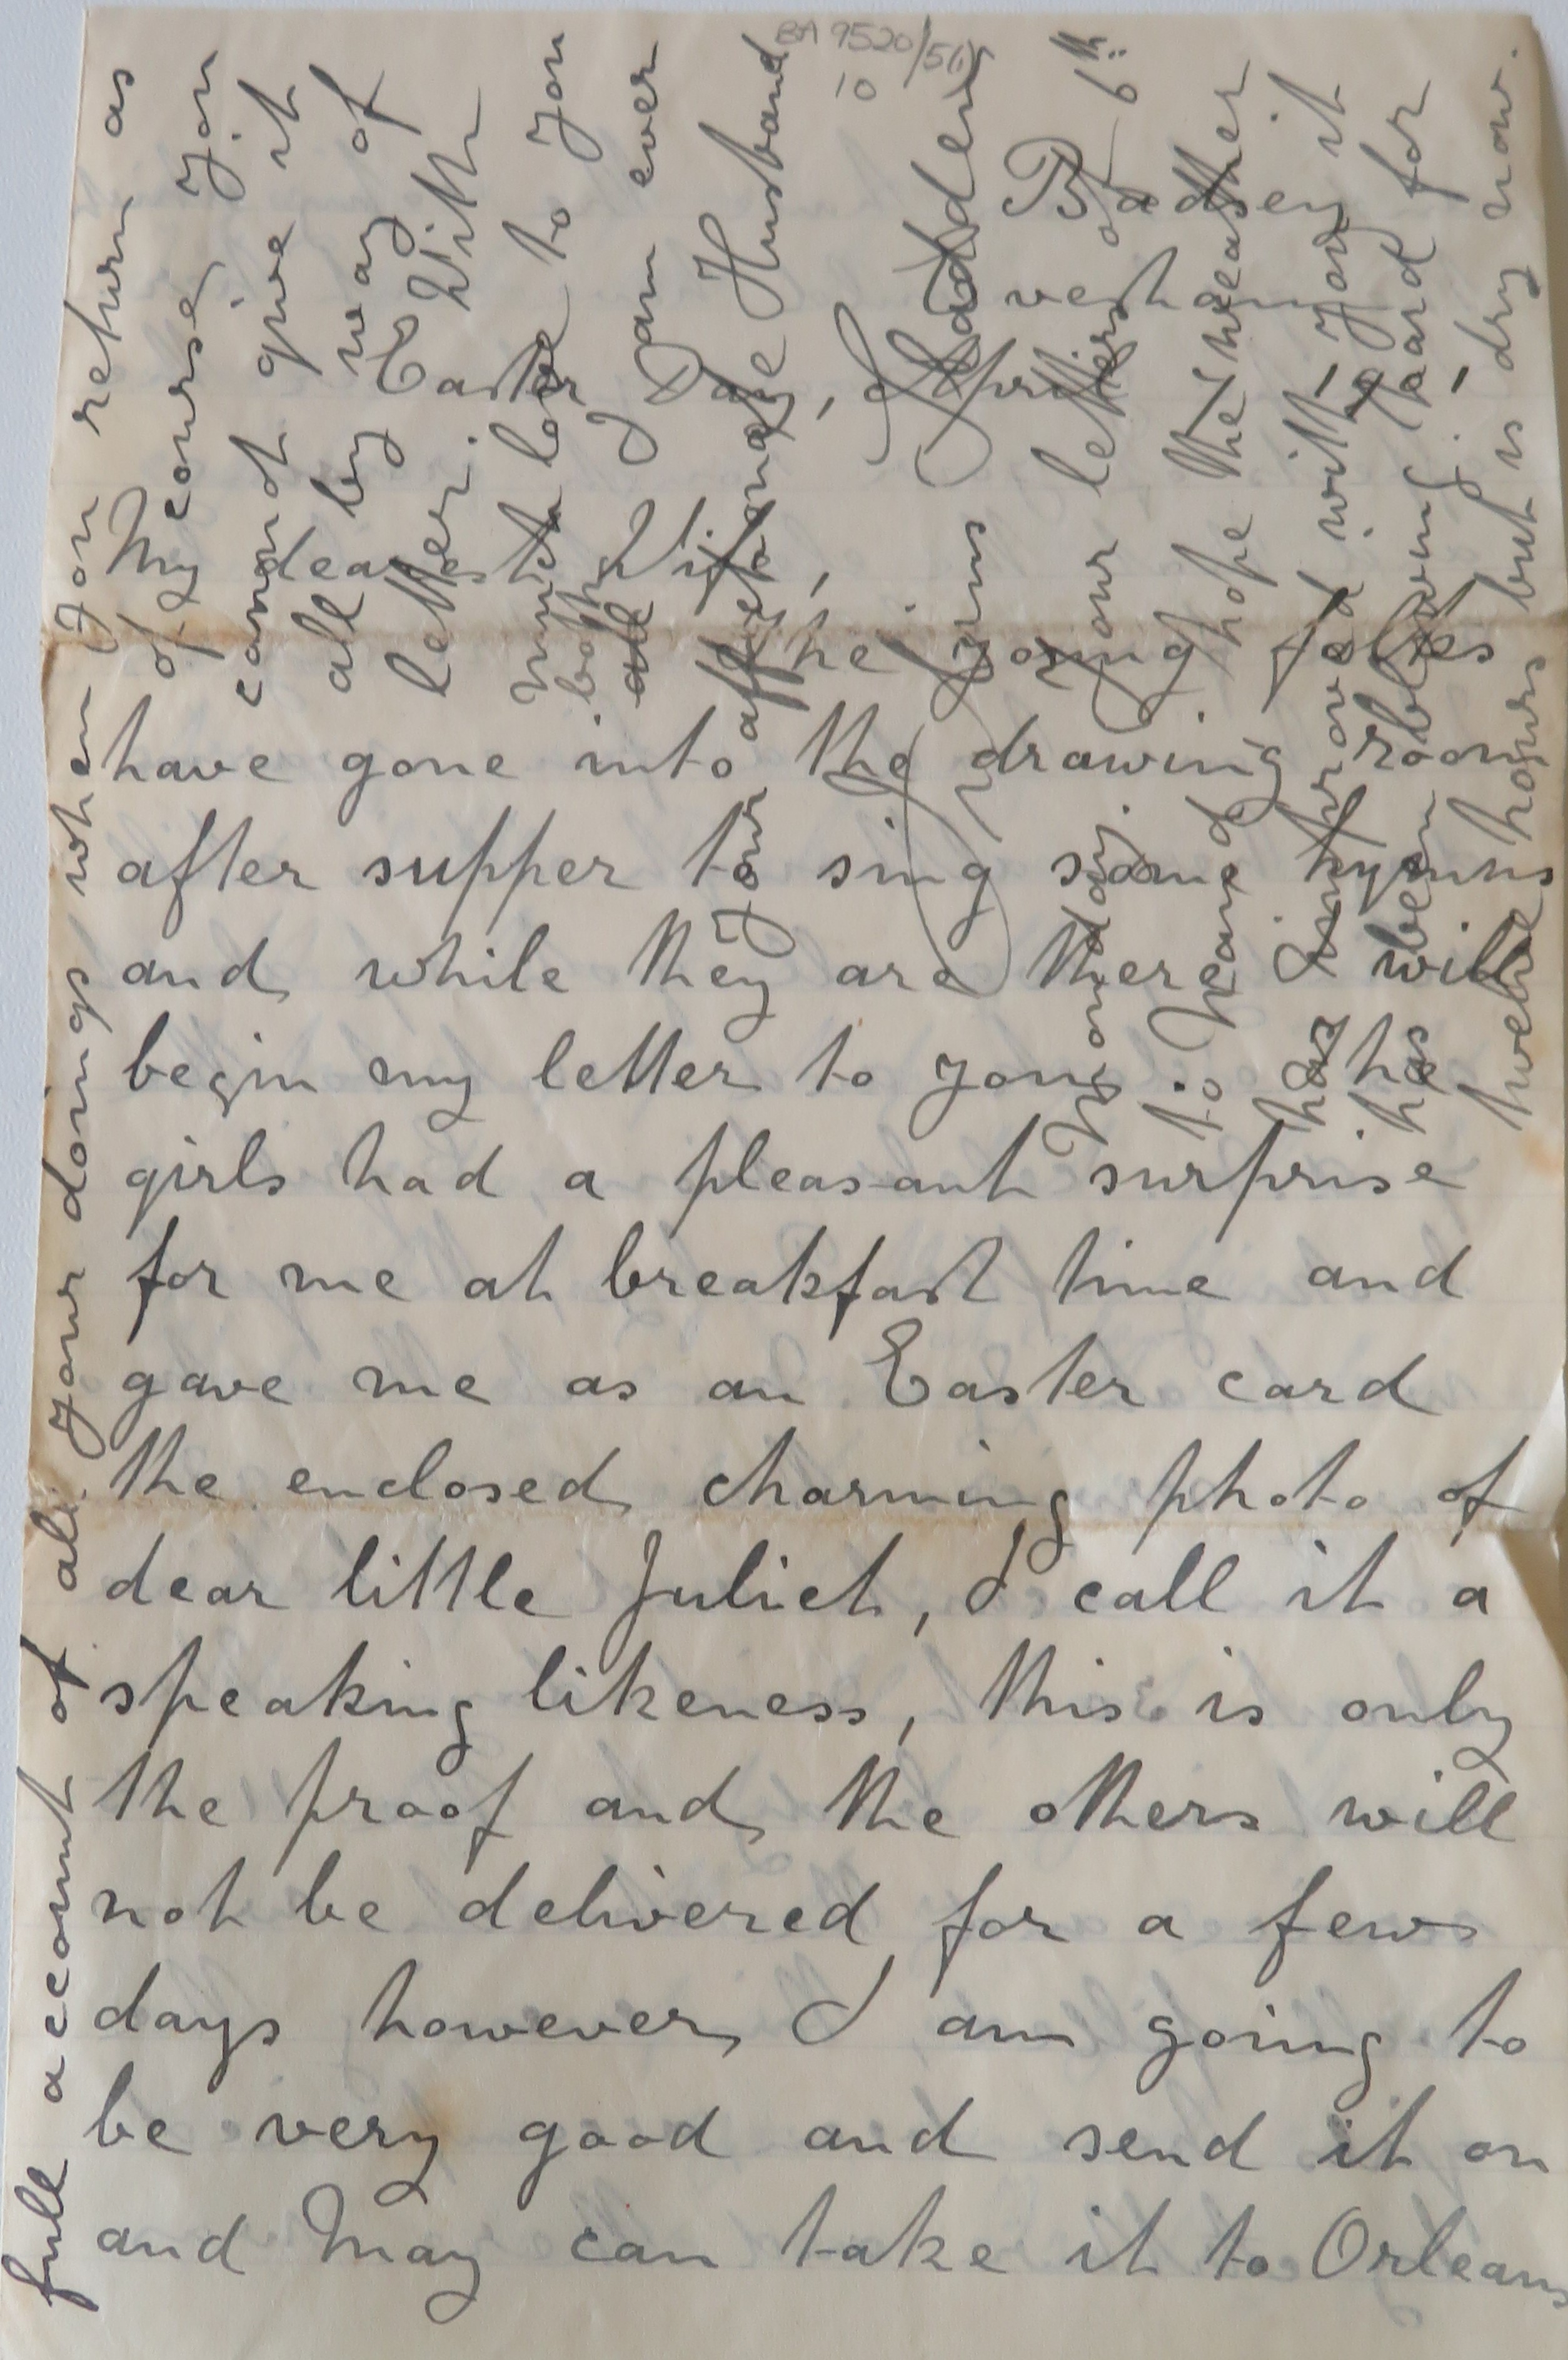 BA 9520/56
10
Badsey
Evesham
Easter Day, April 6th
My dearest Wife,
The young folks
have gone into the drawing room
after supper to sing some hymns
and while they are there I will
begin my letter to you. The
girls had a pleasant surprise
for me at breakfast time and
gave me as an Easter card
the enclosed charming photo of
dear little Juliet, I call it a
speaking likeness, this is only
the proof and the others will
not be delivered for a few
days however I am going to
be very good and send it on
and May can take it to Orleans
full account of all your doings when you return as
of course you
cannot give it
all by way of
letter. With
much love to you
both
all I am ever
Your affectionate Husband
Sladden
Monday. your letters
to hand hope the weather
has improved with you it
has been blowing hard for
twelve hours but is dry now.